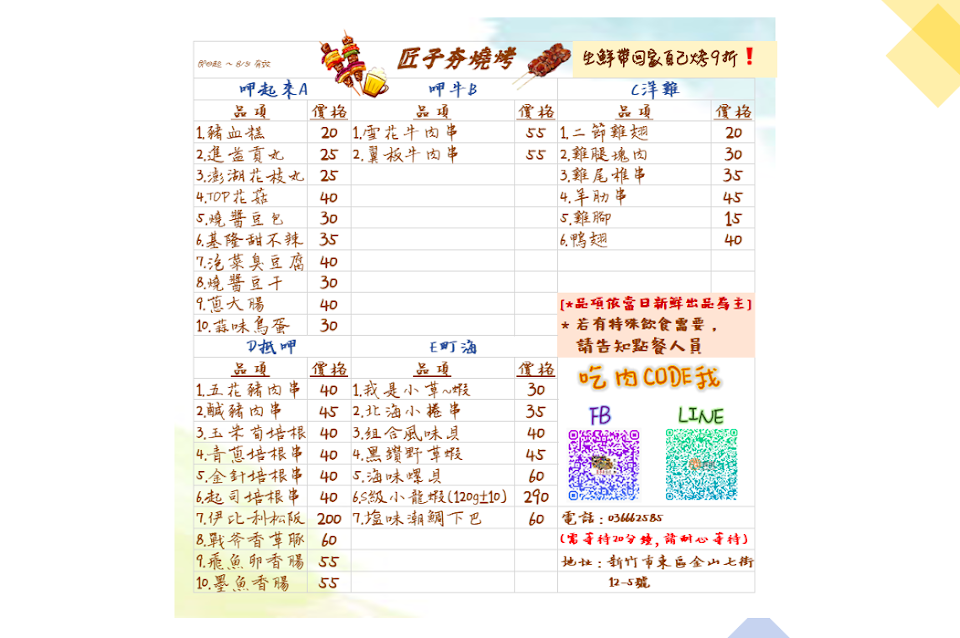 匠子夯燒烤
生鮮帶回家自己烤9折❗
呷起來A
品項 價格
1.豬血糕 20
2.進益貢丸 25
3.澎湖花枝丸 25
4.TOP花菇 40
5.燒醬豆包 30
6.基隆甜不辣 35
7.泡菜臭豆腐 40
8.燒醬豆干 30
9.蔥大腸 40
10.蒜味鳥蛋 30
呷牛B
品項 價格
1.雪花牛肉串 55
2.翼板牛肉串 55
C洋雞
品項 價格
1.二節雞翅 20
2.雞腿塊肉 30
3.雞尾椎串 35
4.羊肋串 45
5.雞腳 15
6.鴨翅 40
D抵呷
品項 價格
1.五花豬肉串 40
2.鹹豬肉串 45
3.玉米筍培根 40
4.青蔥培根串 40
5.金針培根串 40
6.起司培根串 40
7.伊比利松阪 200
8.戰斧香草豚 60
9.飛魚卵香腸 55
10.墨魚香腸 55
E町海
品項 價格
1.我是小草~蝦 30
2.北海小捲串 35
3.組合風味貝 40
4.黑鑽野草蝦 45
5.海味螺貝 60
6.S級小龍蝦(120g±10) 290
7.塩味潮鯛下巴 60
[*品項依當日新鮮出品為主]
* 若有特殊飲食需要，
請告知點餐人員
吃肉CODE我
FB
LINE
電話：036662585
(需等待20分鐘,請耐心等待)
地址：新竹市東區金山七街
12-5號